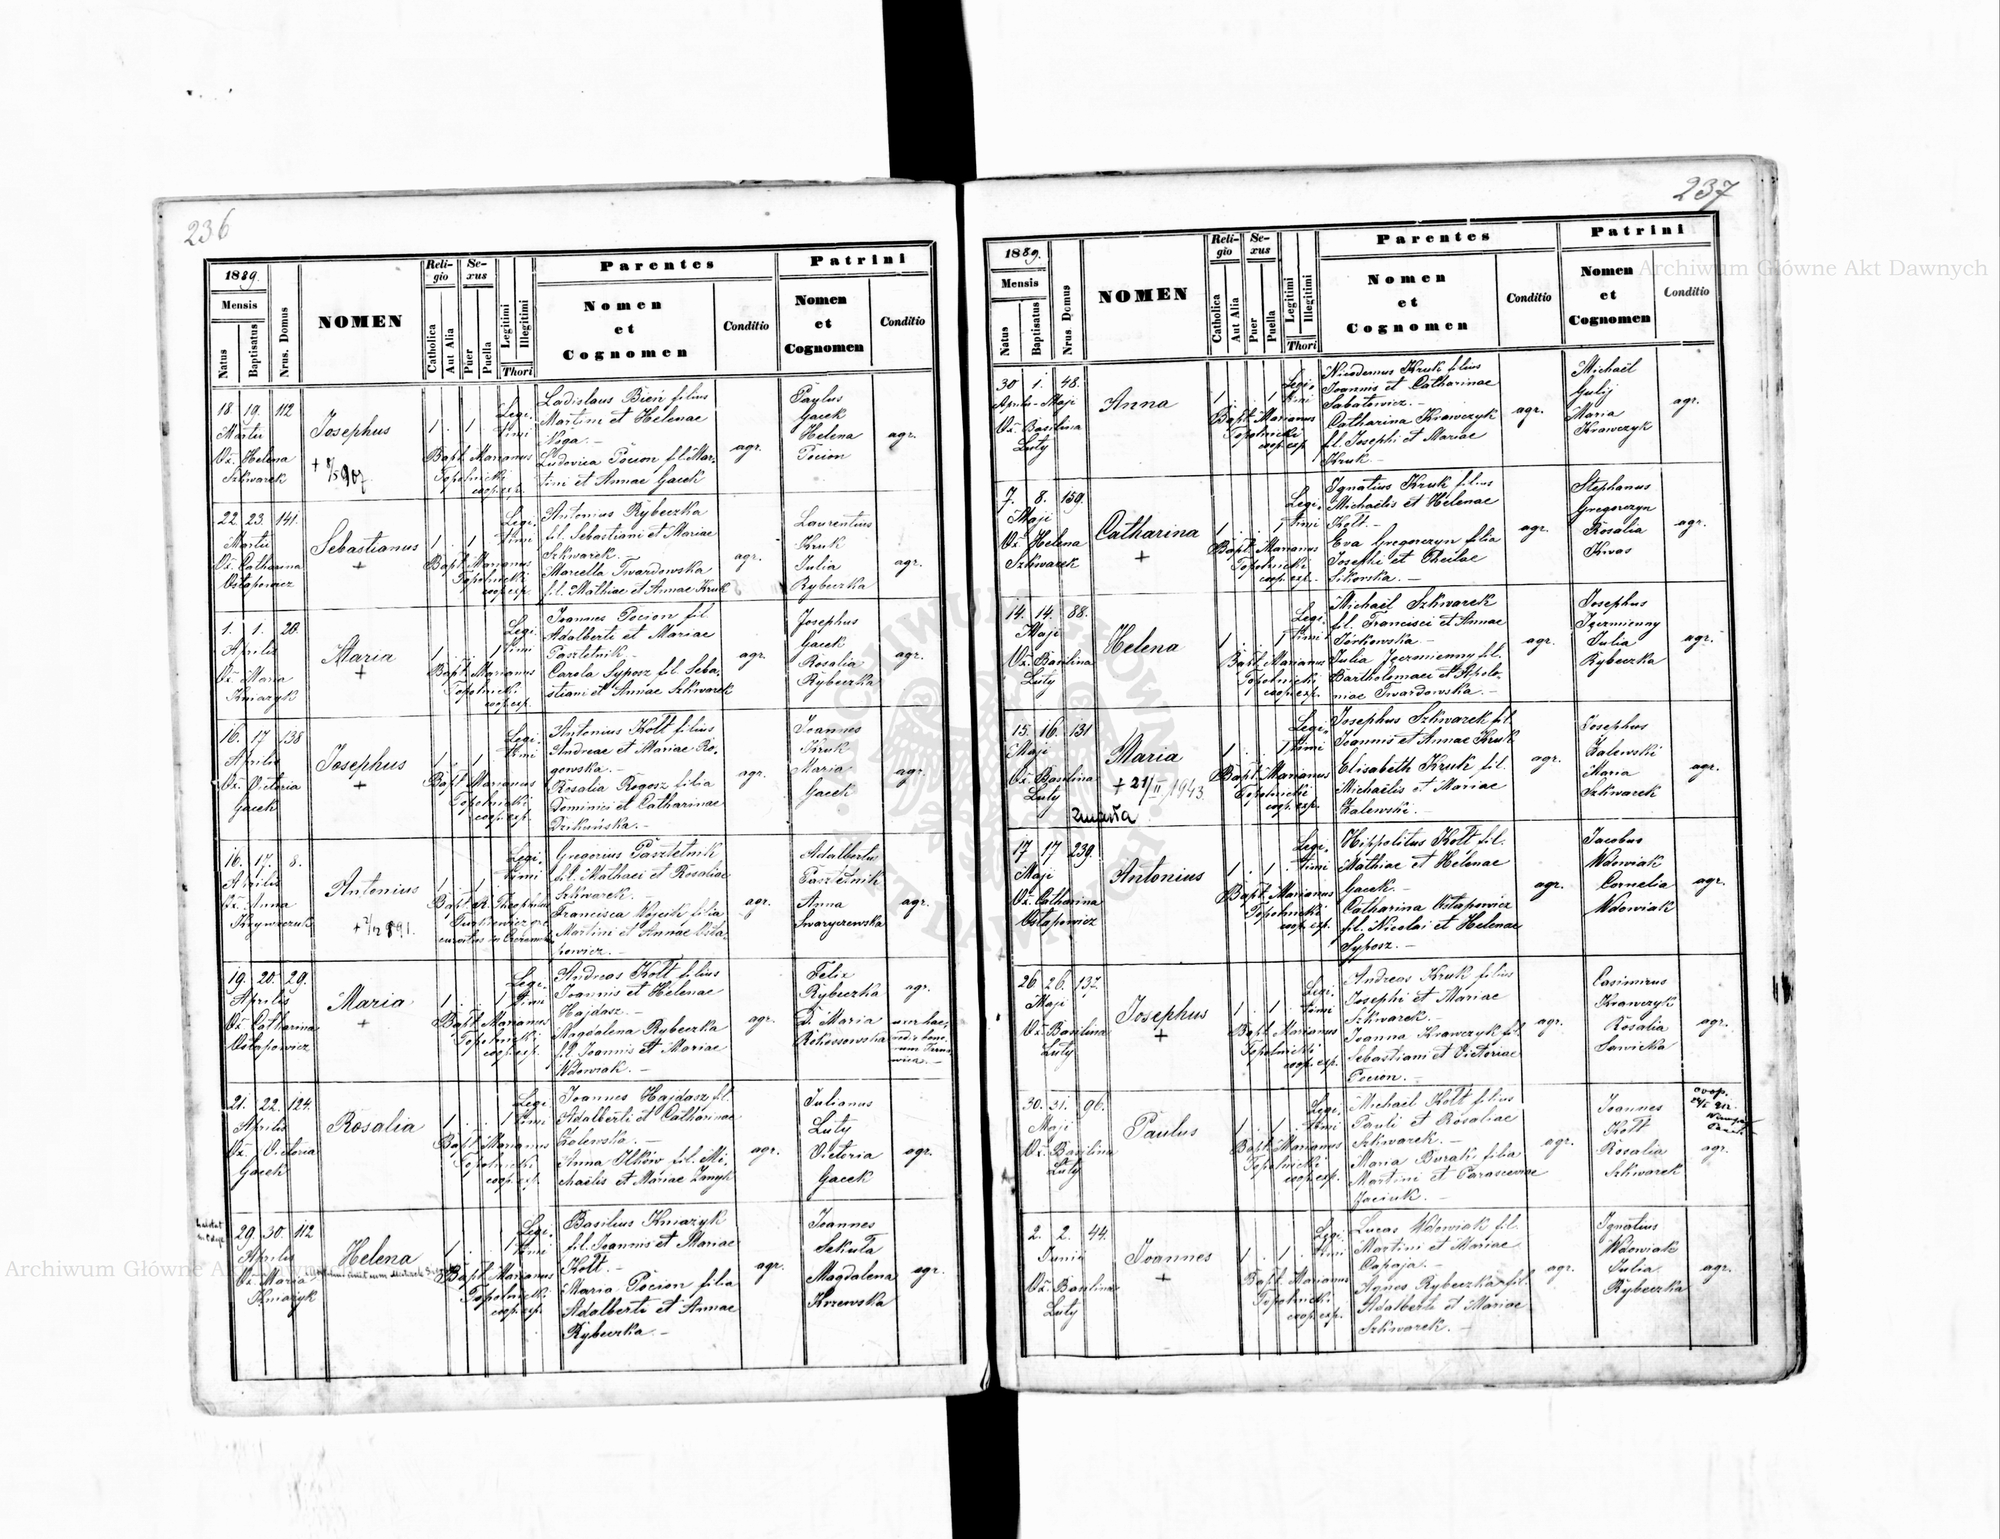 236
1889.
Mensis
Natus
Baptisatus
Nrus. Domus
NOMEN
Reli-
gio
Catholica
Aut Alia
Se-
xus
Puer
Puella
Legitimi
Illegitimi
Thori
Parentes
Nomen
et
Cognomen
Conditio
Patrini
Nomen
et
Cognomen
Conditio
18. 19. 112
Martii
Ob. Helena
Szkwarek
Josephus
1 . 1 .
Legi-
timi
Bapt. Marianus
Topolnicki
coop. exp.
Ladislaus Bień filius
Martini et Helenae
Noga. —
Ludovica Pocion fil. Mar-
tini et Annae Gacek
agr.
Paulus
Gacek
Helena
Pocion
agr.
22. 23. 141.
Martii
Ob. Catharina
Ostapowicz
Sebastianus
+
1 . 1 .
Legi-
timi
Bapt. Marianus
Topolnicki
coop. exp.
Antonius Rybeczka
fil. Sebastiani et Mariae
Szkwarek.
Marcella Twardowska
fil. Mathiae et Annae Kruk
agr.
Laurentius
Kruk
Julia
Rybeczka
agr.
1. 1. 20.
Aprilis
Ob. Maria
Kniazyk
Maria
+
1 . . 1
Legi-
timi
Bapt. Marianus
Topolnicki
coop. exp.
Joannes Pocion fil.
Adalberti et Mariae
Pasztetnik —
Carola Syposz fil. Seba-
stiani et Annae Szkwarek
agr.
Josephus
Gacek
Rosalia
Rybeczka
agr.
16. 17 138
Aprilis
Ob. Victoria
Gacek
Josephus
+
1 . 1 .
Legi-
timi
Bapt. Marianus
Topolnicki
coop. exp.
Antonius Kołt filius
Andreae et Mariae Ro-
gowska. —
Rosalia Rogosz filia
Dominici et Catharinae
Dzikuńska. —
agr.
Joannes
Kruk
Maria
Gacek
agr.
16. 17. 8.
Aprilis
Ob. Anna
Krywczuk
Antonius
1 . 1 .
Legi-
timi
Gregorius Pasztetnik
fil. Mathaei et Rosaliae
Szkwarek. —
Francisca Wojcik filia
Martini et Annae Osta-
powicz. —
agr.
Adalbertus
Pasztetnik
Anna
Swaryczewska
agr.
19. 20. 29.
Aprilis
Ob. Catharina
Ostapowicz
Maria
+
1 . . 1
Legi-
timi
Bapt. Marianus
Topolnicki
coop. exp.
Andreas Kołt filius
Joannis et Helenae
Hajdasz. —
Magdalena Rybeczka
fil. Joannis et Mariae
Wdowiak. —
agr.
Felix
Rybeczka
D. Maria
Rehossowska
agr.
21. 22. 124.
Aprilis
Ob. Victoria
Gacek
Rosalia
1 . . 1
Legi-
timi
Bapt. Marianus
Topolnicki
coop. exp.
Joannes Hajdasz fil.
Adalberti et Catharinae
Zalewska. —
Anna Ilków fil. Mi-
chaelis et Mariae Zanyk
agr.
Julianus
Luty
Victoria
Gacek
agr.
29. 30. 112
Aprilis
Ob. Maria
Kniazyk
Helena
1 . . 1
Legi-
timi
Bapt. Marianus
Topolnicki
coop. exp.
Basilius Kniazyk
fil. Joannis et Mariae
Kołt. —
Maria Pocion filia
Adalberti et Annae
Rybeczka —
agr.
Joannes
Sekuła
Magdalena
Krzewska
agr.
237
1889.
Mensis
Natus
Baptisatus
Nrus. Domus
NOMEN
Reli-
gio
Catholica
Aut Alia
Se-
xus
Puer
Puella
Legitimi
Illegitimi
Thori
Parentes
Nomen
et
Cognomen
Conditio
Patrini
Nomen
et
Cognomen
Conditio
30 1. 48.
Aprilis - Maji
Ob. Basilina
Luty
Anna
1 . . 1
Legi-
timi
Bapt. Marianus
Topolnicki
coop. exp.
Nicodemus Kruk filius
Joannis et Catharinae
Sabatowicz. —
Catharina Krawczyk
fil. Josephi et Mariae
Kruk —
agr.
Michaël
Gulij
Maria
Krawczyk
agr.
7. 8. 159.
Maji
Ob. Helena
Szkwarek
Catharina
+
1 . . 1
Legi-
timi
Bapt. Marianus
Topolnicki
coop. exp.
Ignatius Kruk filius
Michaelis et Helenae
Kołt. —
Eva Gregorczyn filia
Josephi et Theclae
Sikorska. —
agr.
Stephanus
Gregorczyn
Rosalia
Kwas
agr.
14. 14. 88.
Maji
Ob. Basilina
Luty
Helena
1 . . 1
Legi-
timi
Bapt. Marianus
Topolnicki
coop. exp.
Michaël Szkwarek
fil. Francisci et Annae
Sórkowska —
Julia Jęczmienny fil.
Bartholomaei et Apolo-
niae Twardowska. —
agr.
Josephus
Jęczmienny
Julia
Rybeczka
agr.
15. 16. 131
Maji
Ob. Basilina
Luty
Maria
+ 21/II 1943.
zmarła
1 . . 1
Legi-
timi
Bapt. Marianus
Topolnicki
coop. exp.
Josephus Szkwarek fil.
Joannis et Annae Kruk
Elisabeth Kruk fil.
Michaelis et Mariae
Zalewski. —
agr.
Josephus
Zalewski
Maria
Szkwarek
agr.
17 17 239.
Maji
Ob. Catharina
Ostapowicz
Antonius
1 . 1 .
Legi-
timi
Bapt. Marianus
Topolnicki
coop. exp.
Hippolitus Kołt fil.
Mathiae et Helenae
Gacek. —
Catharina Ostapowicz
fil. Nicolai et Helenae
Syposz. —
agr.
Jacobus
Wdowiak
Cornelia
Wdowiak
agr.
26 26. 137.
Maji
Ob. Basilina
Luty
Josephus
+
1 . 1 .
Legi-
timi
Bapt. Marianus
Topolnicki
coop. exp.
Andreas Kruk filius
Josephi et Mariae
Szkwarek. —
Joanna Krawczyk fil.
Sebastiani et Victoriae
Pocion. —
agr.
Casimirus
Krawczyk
Rosalia
Sawicka
agr.
30. 31. 96.
Maji
Ob. Basilina
Luty
Paulus
1 . 1 .
Legi-
timi
Bapt. Marianus
Topolnicki
coop. exp.
Michaël Kołt filius
Pauli et Rosaliae
Szkwarek. —
Maria Burak filia
Martini et Parasceviae
Jaciuk. —
agr.
Joannes
Kołt
Rosalia
Szkwarek
agr.
2. 2. 44.
Junii
Ob. Basilina
Luty
Joannes
+
1 . 1 .
Legi-
timi
Bapt. Marianus
Topolnicki
coop. exp.
Lucas Wdowiak fil.
Martini et Mariae
Capaja. —
Agnes Rybeczka fil.
Adalberti et Mariae
Szkwarek. —
agr.
Ignatius
Wdowiak
Julia
Rybeczka
agr.
Archiwum Główne Akt Dawnych